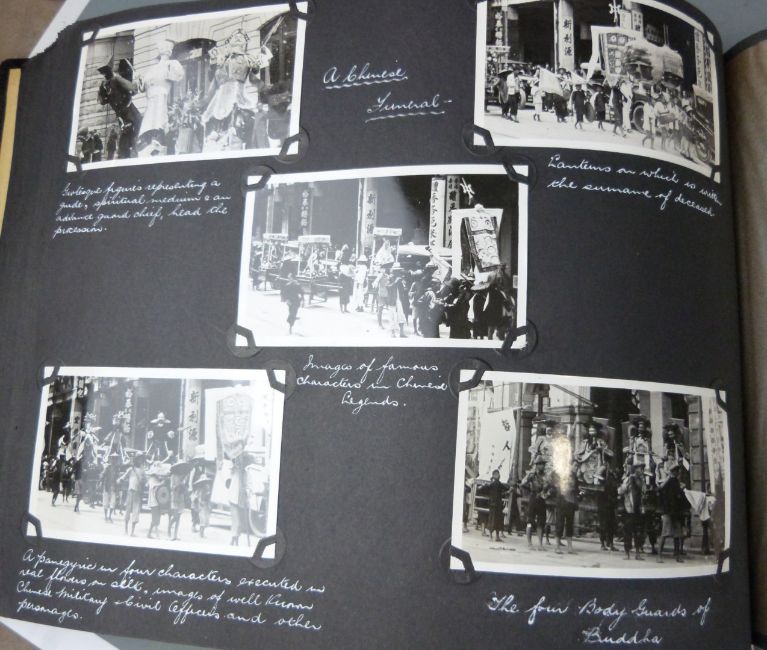 A Chinese
Funeral -
Grotesque figures representing a
guide, spiritual medium & an
advance guard chief, head the
procession.
新利源
Lanterns on which is written
the surname of deceased
新利源
Images of famous
characters in Chinese
Legends.
新利源
A panegyric in four characters executed in
real flowers on silk, images of well known
Chinese Military & Civil Officers and other
personages.
The four Body Guards of
Buddha